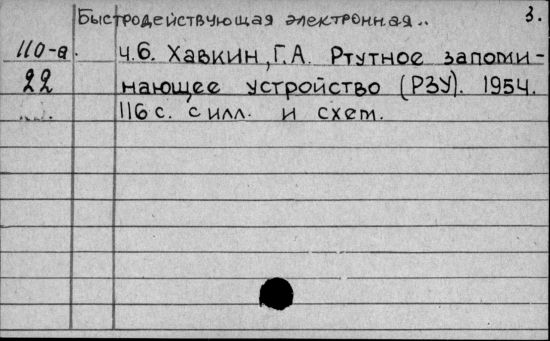 Быстродействующая электронная.. 3.
110-а. ч.6. Хавкин, Г.А. Ртутное запоми-
22 нающее устройство (РЗУ). 1954.
116 с. с илл. и схем.